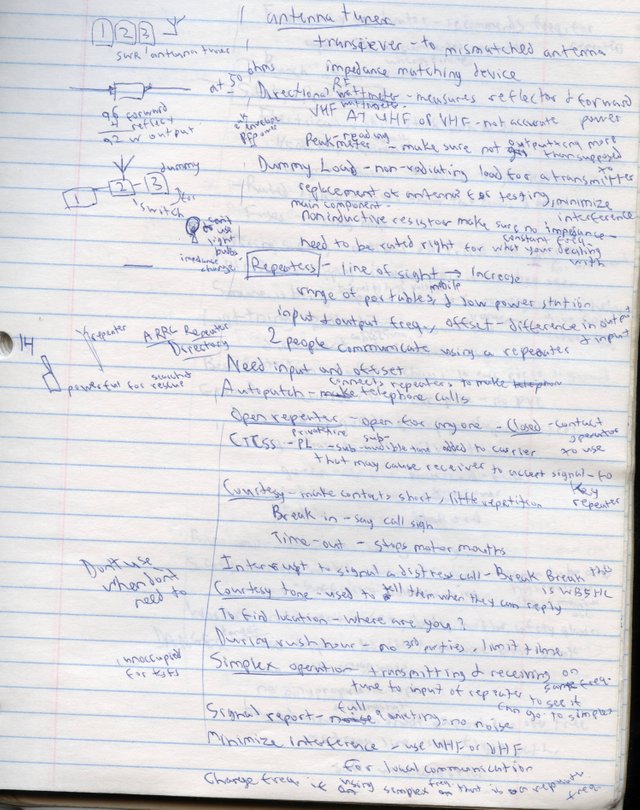 1 2 3
swr / antenna tuner
antenna tuner
transceiver - to mismatched antenna
impedance matching device
at 50 ohms
RF
Directional wattmeter - measures reflector & forward
power
VHF wattmeter
AT UHF or VHF - not accurate
96 forward
4 reflect
92 w output
envelope
PEP power
reading
Peakmeter - make sure not outputting more
than supposed
to
dummy
1 2 3
switch
for
Dummy Load - non-radiating load for a transmitter
replacement of antenna for testing, minimize
interference
main component -
noninductive resistor make sure no impedance -
constant freq.
need to be rated right for what your dealing
with
cant
to use
light
bulbs
impedance
changes
Repeaters - line of sight → Increase
mobile
range of portables, & low power station
input & output freq., offset - difference in output
& input
repeater
ARRL Repeater
Directory
2 people communicate using a repeater
14
Need input and offset
powerful for rescue
connects repeaters to make telephon
Autopatch - make telephone calls
Open repeater - open for anyone - Closed - contact
operator
to use
private line
CTCSS - PL - sub-audible tone added to carrier
that may cause receiver to accept signal - to
key
repeater
Courtesy - make contacts short, little repetition
Break in - say call sign
Time-out - stops motor mouths
Dont use
when dont
need to
Interrupt to signal a distress call - Break Break this
is WB5HC
Courtesy tone - used to tell them when they can reply
To find location - where are you?
During rush hour - no 3rd parties, limit time
unnoccupied
for tests
Simplex operation - transmitting & receiving on
same freq.
tune to input of repeater to see if
can go to simplex
full
Signal report - noise quieting - no noise
Minimize interference - use UHF or VHF
for local communication
Change freq. if using simplex on freq that is a repeater
freq.